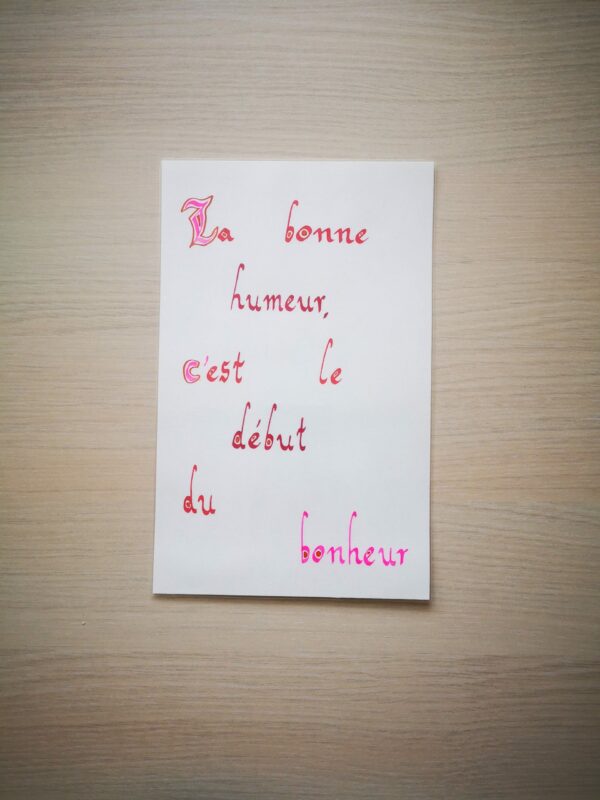 La bonne
humeur,
c'est le
début
du
bonheur